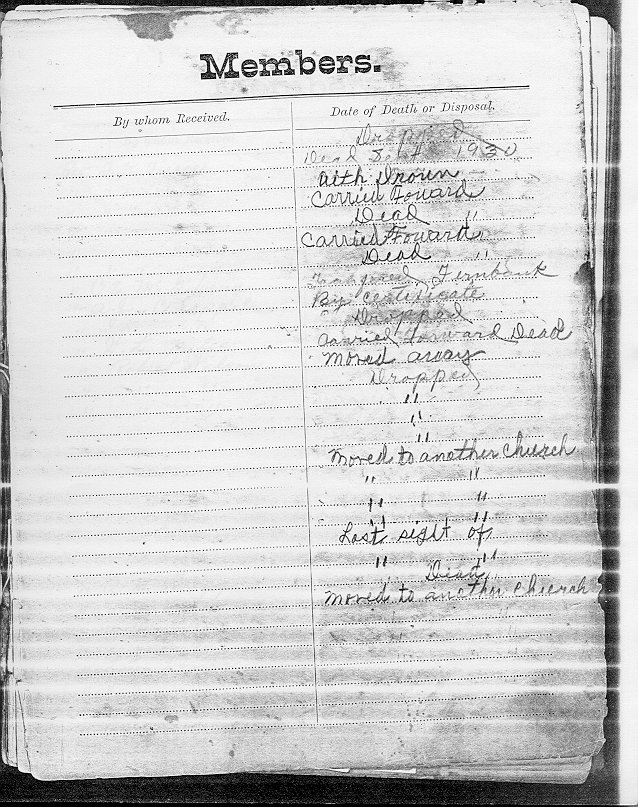 Members.
By whom Received.
Date of Death or Disposal.
Dropped
Dead Sept 1930
With
Carried Foward
Dead "
Carried Foward
Dead "
Fernbank
By Certificate
Dropped
Carried Forward Dead
Moved away
Dropped
"
"
"
Moved to another Church
" "
" "
" "
Lost sight of
" "
Dead
Moved to another Church